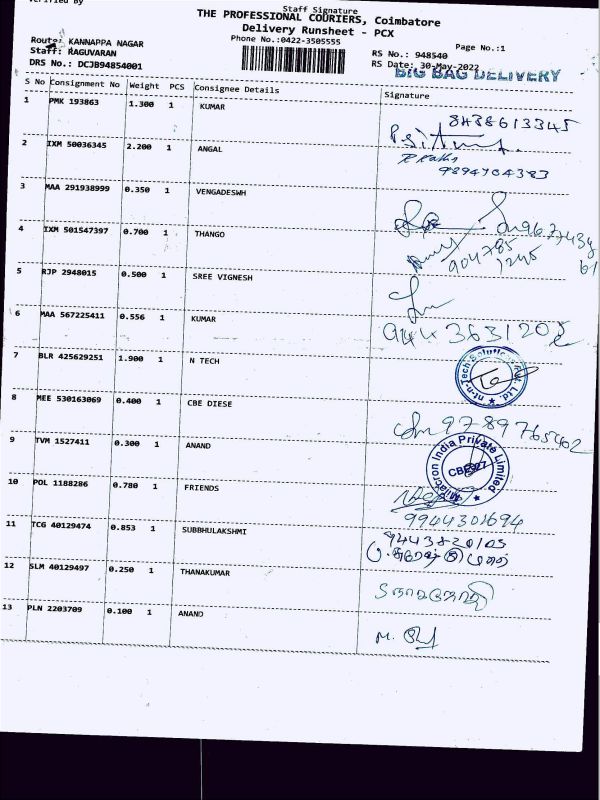 Verified By
Staff Signature
THE PROFESSIONAL COURIERS, Coimbatore
Delivery Runsheet - PCX
Phone No.:0422-3505555
Route: KANNAPPA NAGAR
Page No.:1
Staff: RAGUVARAN
RS No.: 948540
DRS No.: DCJB94854001
RS Date: 30-May-2022
BIG BAG DELIVERY
S No Consignment No Weight PCS Consignee Details Signature
1 PMK 193863 1.300 1 KUMAR
8438613345
2 IXM 50036345 2.200 1 ANGAL
9894704383
3 MAA 291938999 0.350 1 VENGADESWH
4 IXM 501547397 0.700 1 THANGO
904785
1245
5 RJP 2948015 0.500 1 SREE VIGNESH
6 MAA 567225411 0.556 1 KUMAR
7 BLR 425629251 1.900 1 N TECH
8 MEE 530163069 0.400 1 CBE DIESE
9789765402
9 TVM 1527411 0.300 1 ANAND
India Private Limited
10 POL 1188286 0.780 1 FRIENDS
9944301694
11 TCG 40129474 0.853 1 SUBBHULAKSHMI
9443820105
12 SLM 40129497 0.250 1 THANAKUMAR
13 PLN 2203709 0.100 1 ANAND